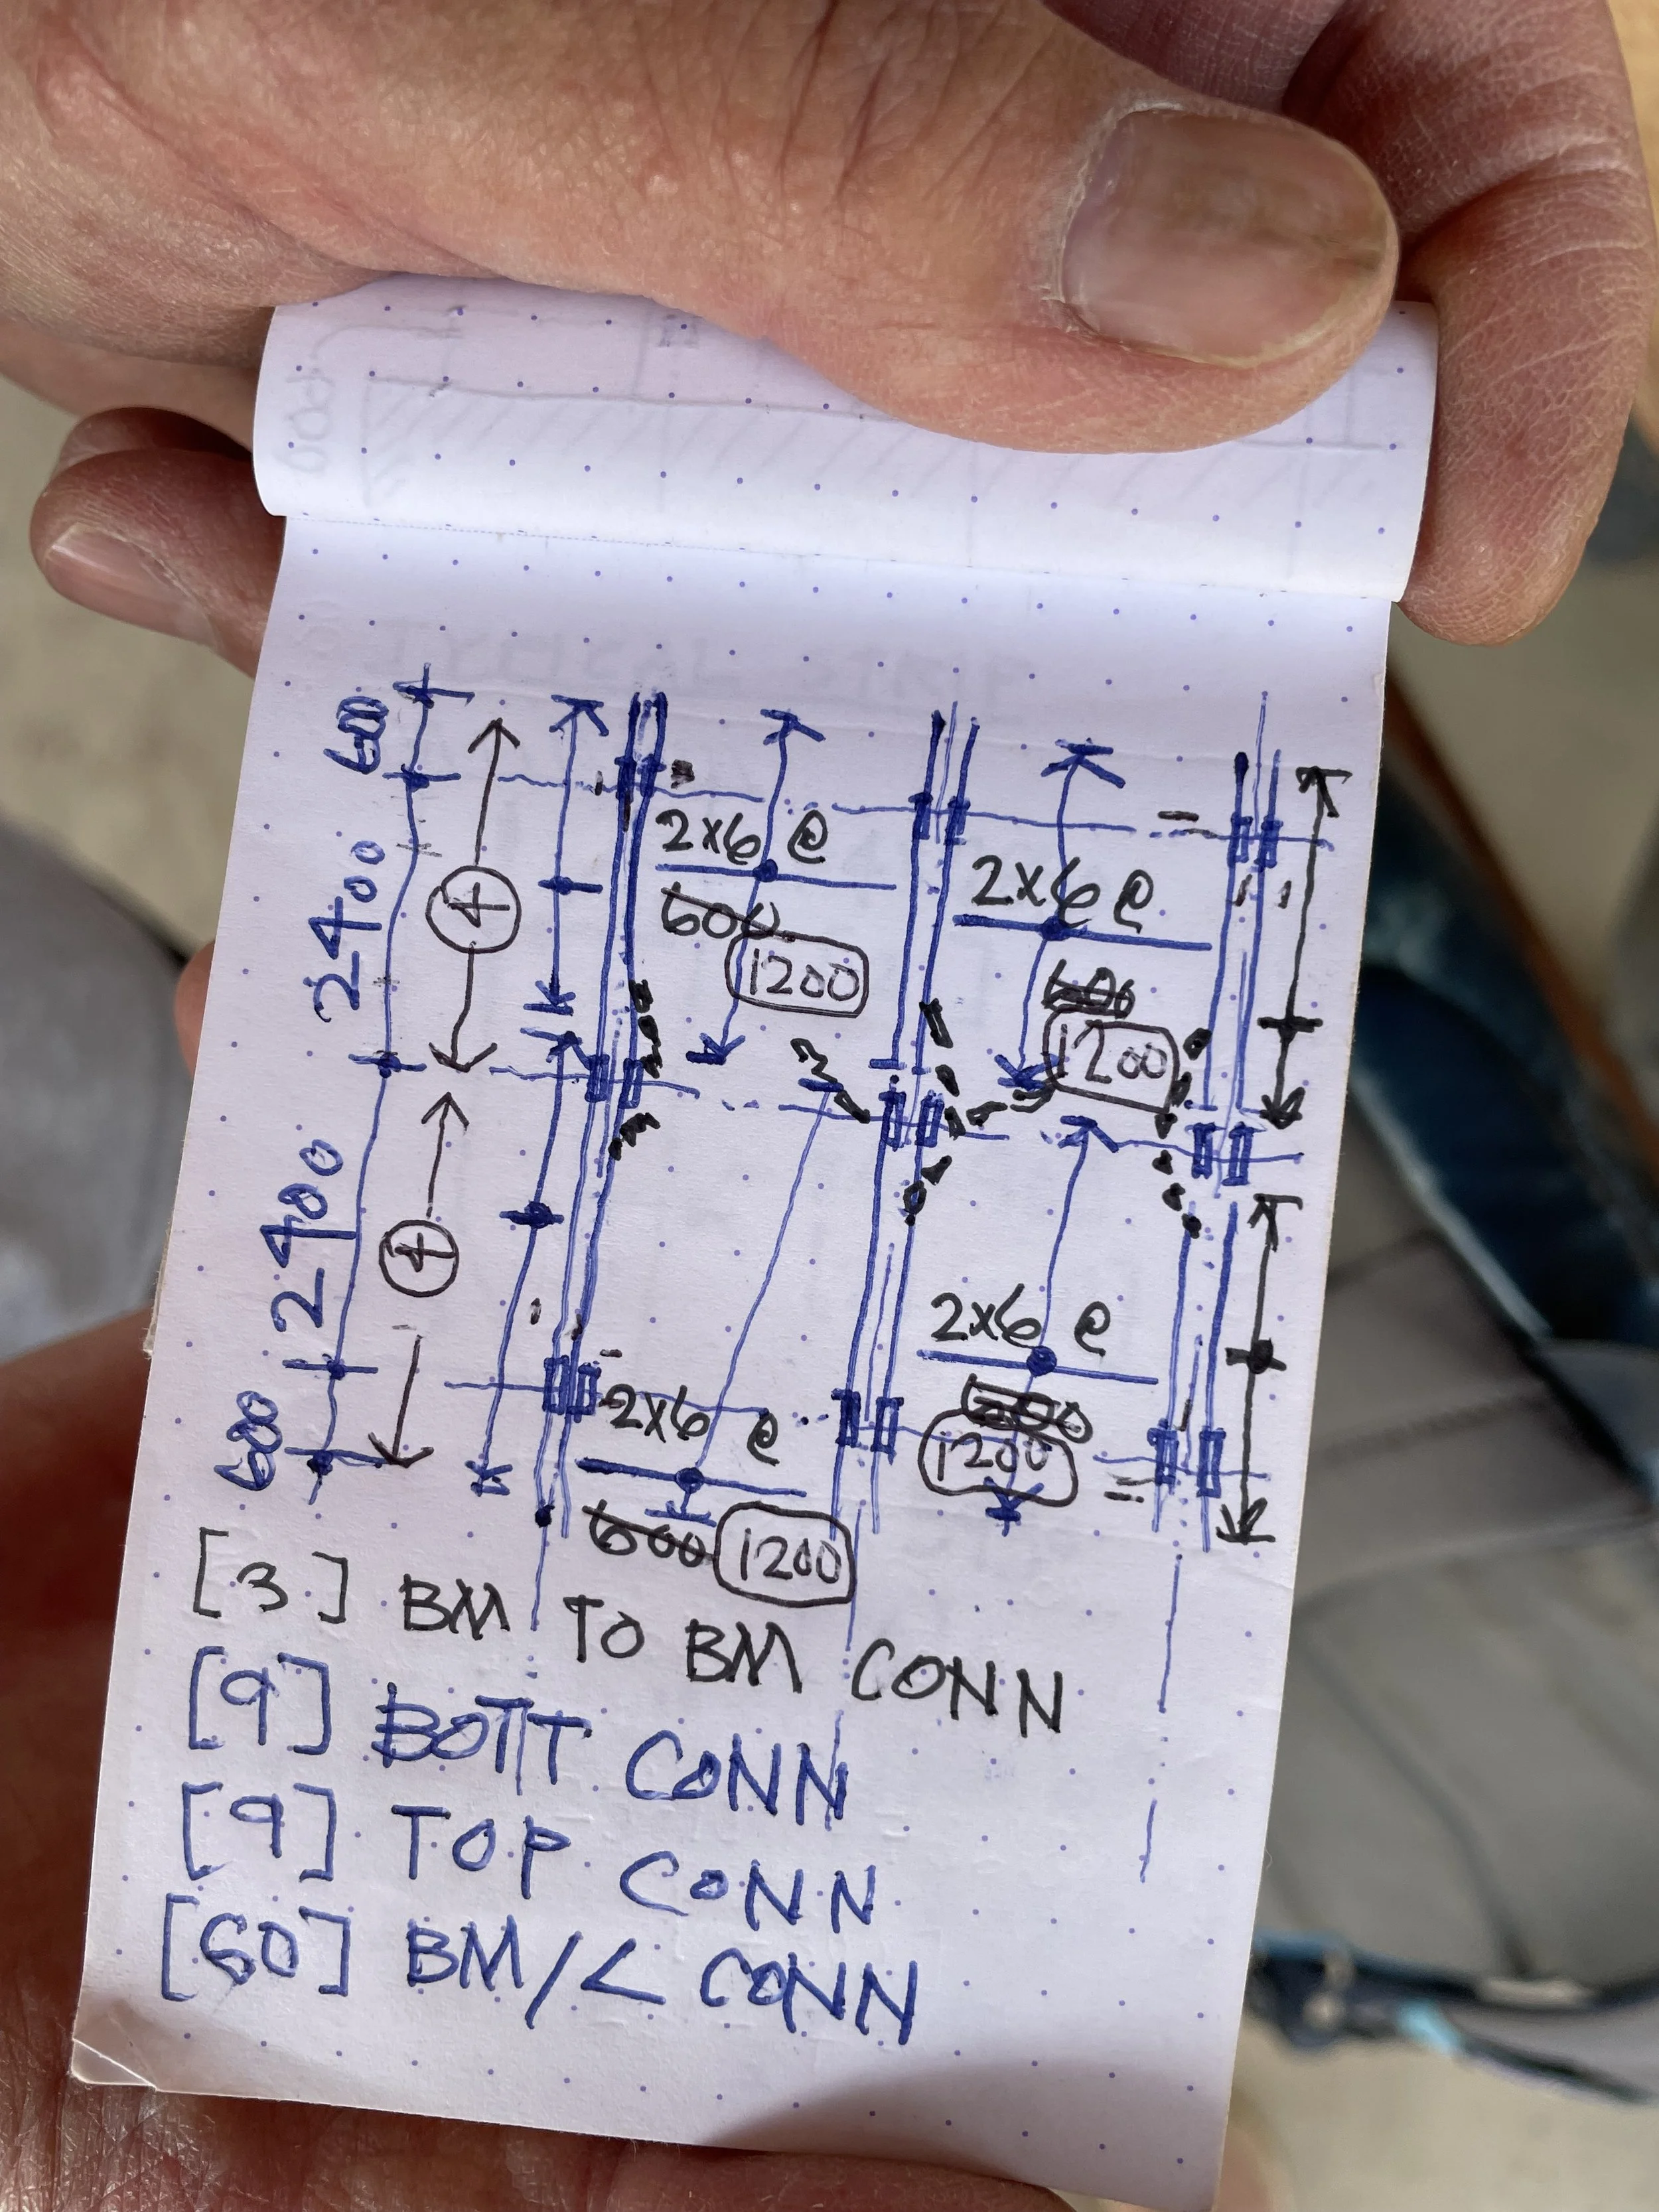 600
2400
2400
600
4
4
2x6 @
600
1200
2x6 @
600
1200
2x6 @
600
1200
2x6 @
1200
[3] BM TO BM CONN
[9] BOTT CONN
[9] TOP CONN
[60] BM/L CONN